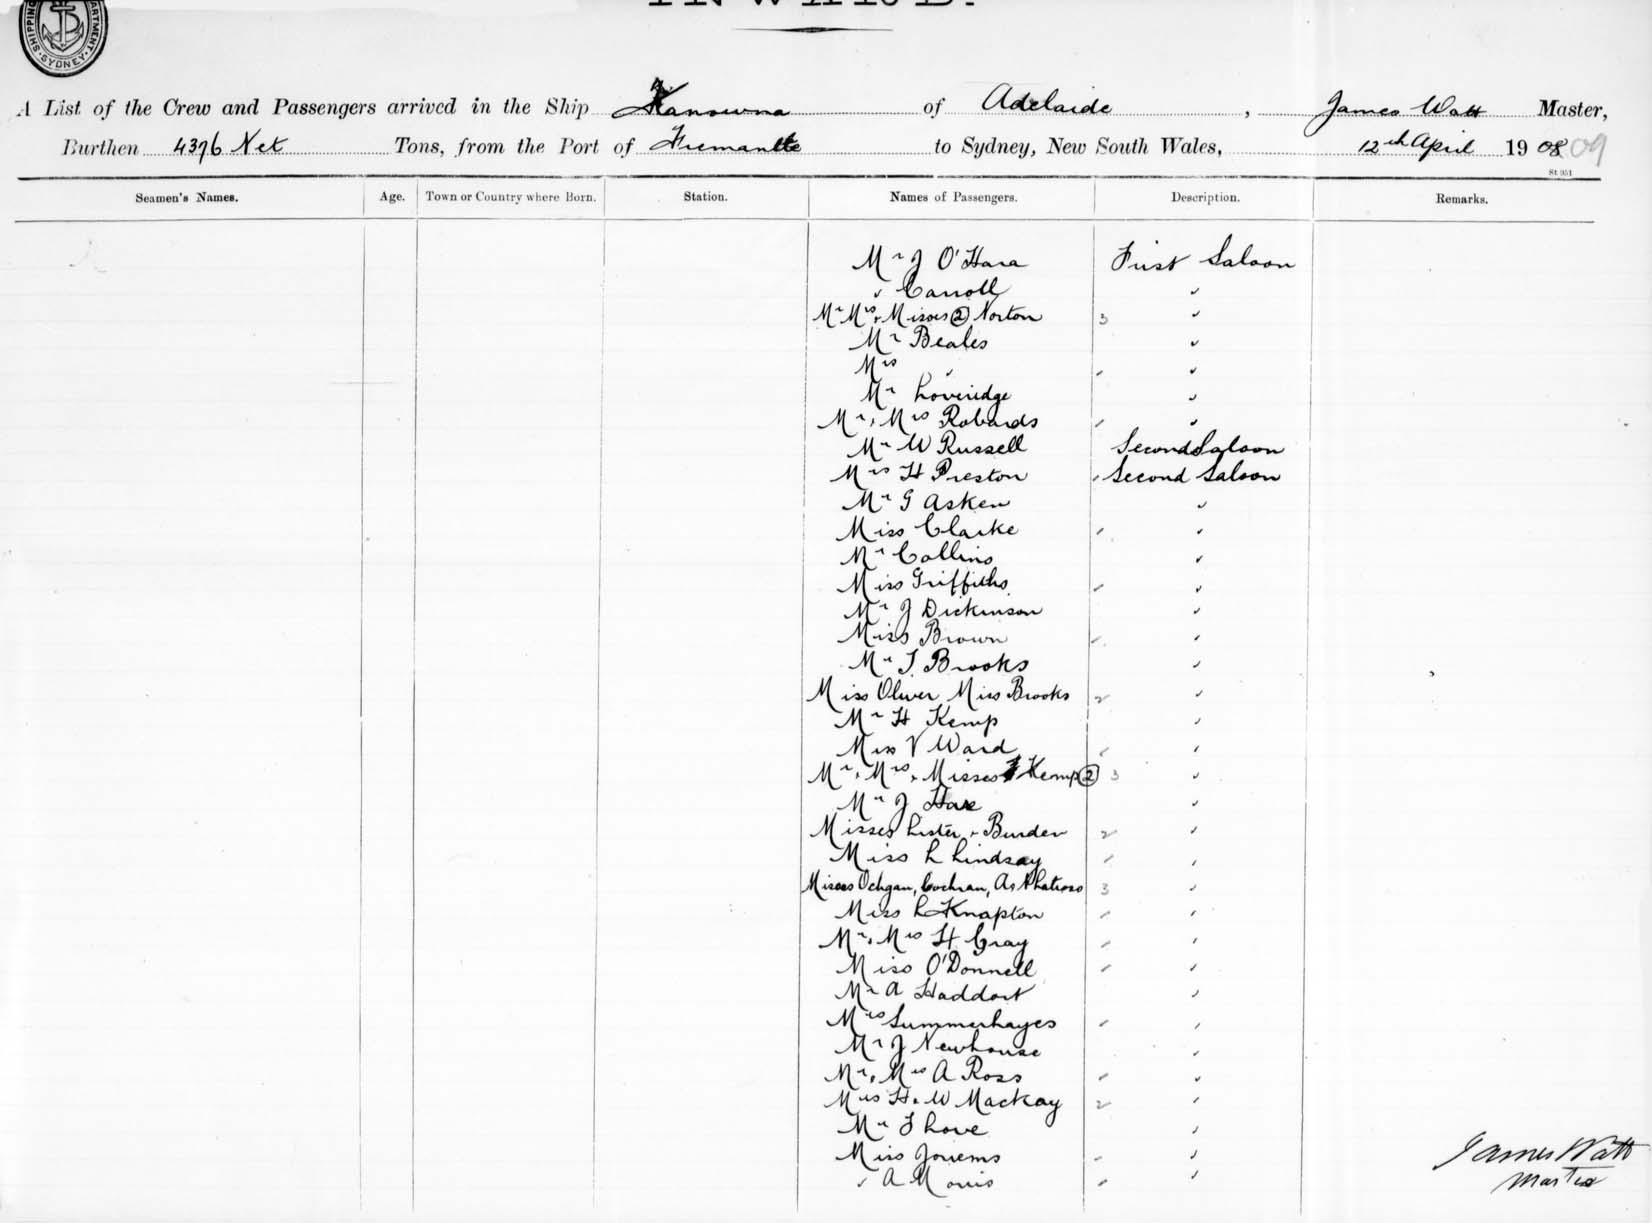 INWARD.
SHIPPING DEPARTMENT SYDNEY
A List of the Crew and Passengers arrived in the Ship Kanowna of Adelaide, James Watt Master,
Burthen 4396 Net Tons, from the Port of Fremantle to Sydney, New South Wales, 12th April 1908 09
St 951
Seamen's Names. Age. Town or Country where Born. Station. Names of Passengers. Description. Remarks.
Mr J O'Hara First Saloon
" Carroll "
Mr Mrs + Misses (2) Norton 3 "
Mr Beales "
Mrs " "
Mr Loveridge "
Mr + Mrs Robards "
Mr W Russell Second Saloon
Mrs H Preston Second Saloon
Mr G Asken "
Miss Clarke "
Mr Collins "
Miss Griffiths "
Mr J Dickinson "
Miss Brown "
Mr T Brooks "
Miss Oliver Miss Brooks 2 "
Mr H Kemp "
Miss V Ward "
Mr + Mrs + Misses Kemp (2) 3 "
Mr J Hare "
Misses Lister + Burden 2 "
Miss L Lindsay "
Misses Ochgan, Cochran, 3 "
Miss L Knapton "
Mr + Mrs H Gray "
Miss O'Donnell "
Mr A Haddort "
Mrs Summerhayes "
Mr J Newhouse "
Mr + Mrs A Ross "
Mrs H + W Mackay 2 "
Mr F Love "
Miss "
" A Morris "
James Watt
Master